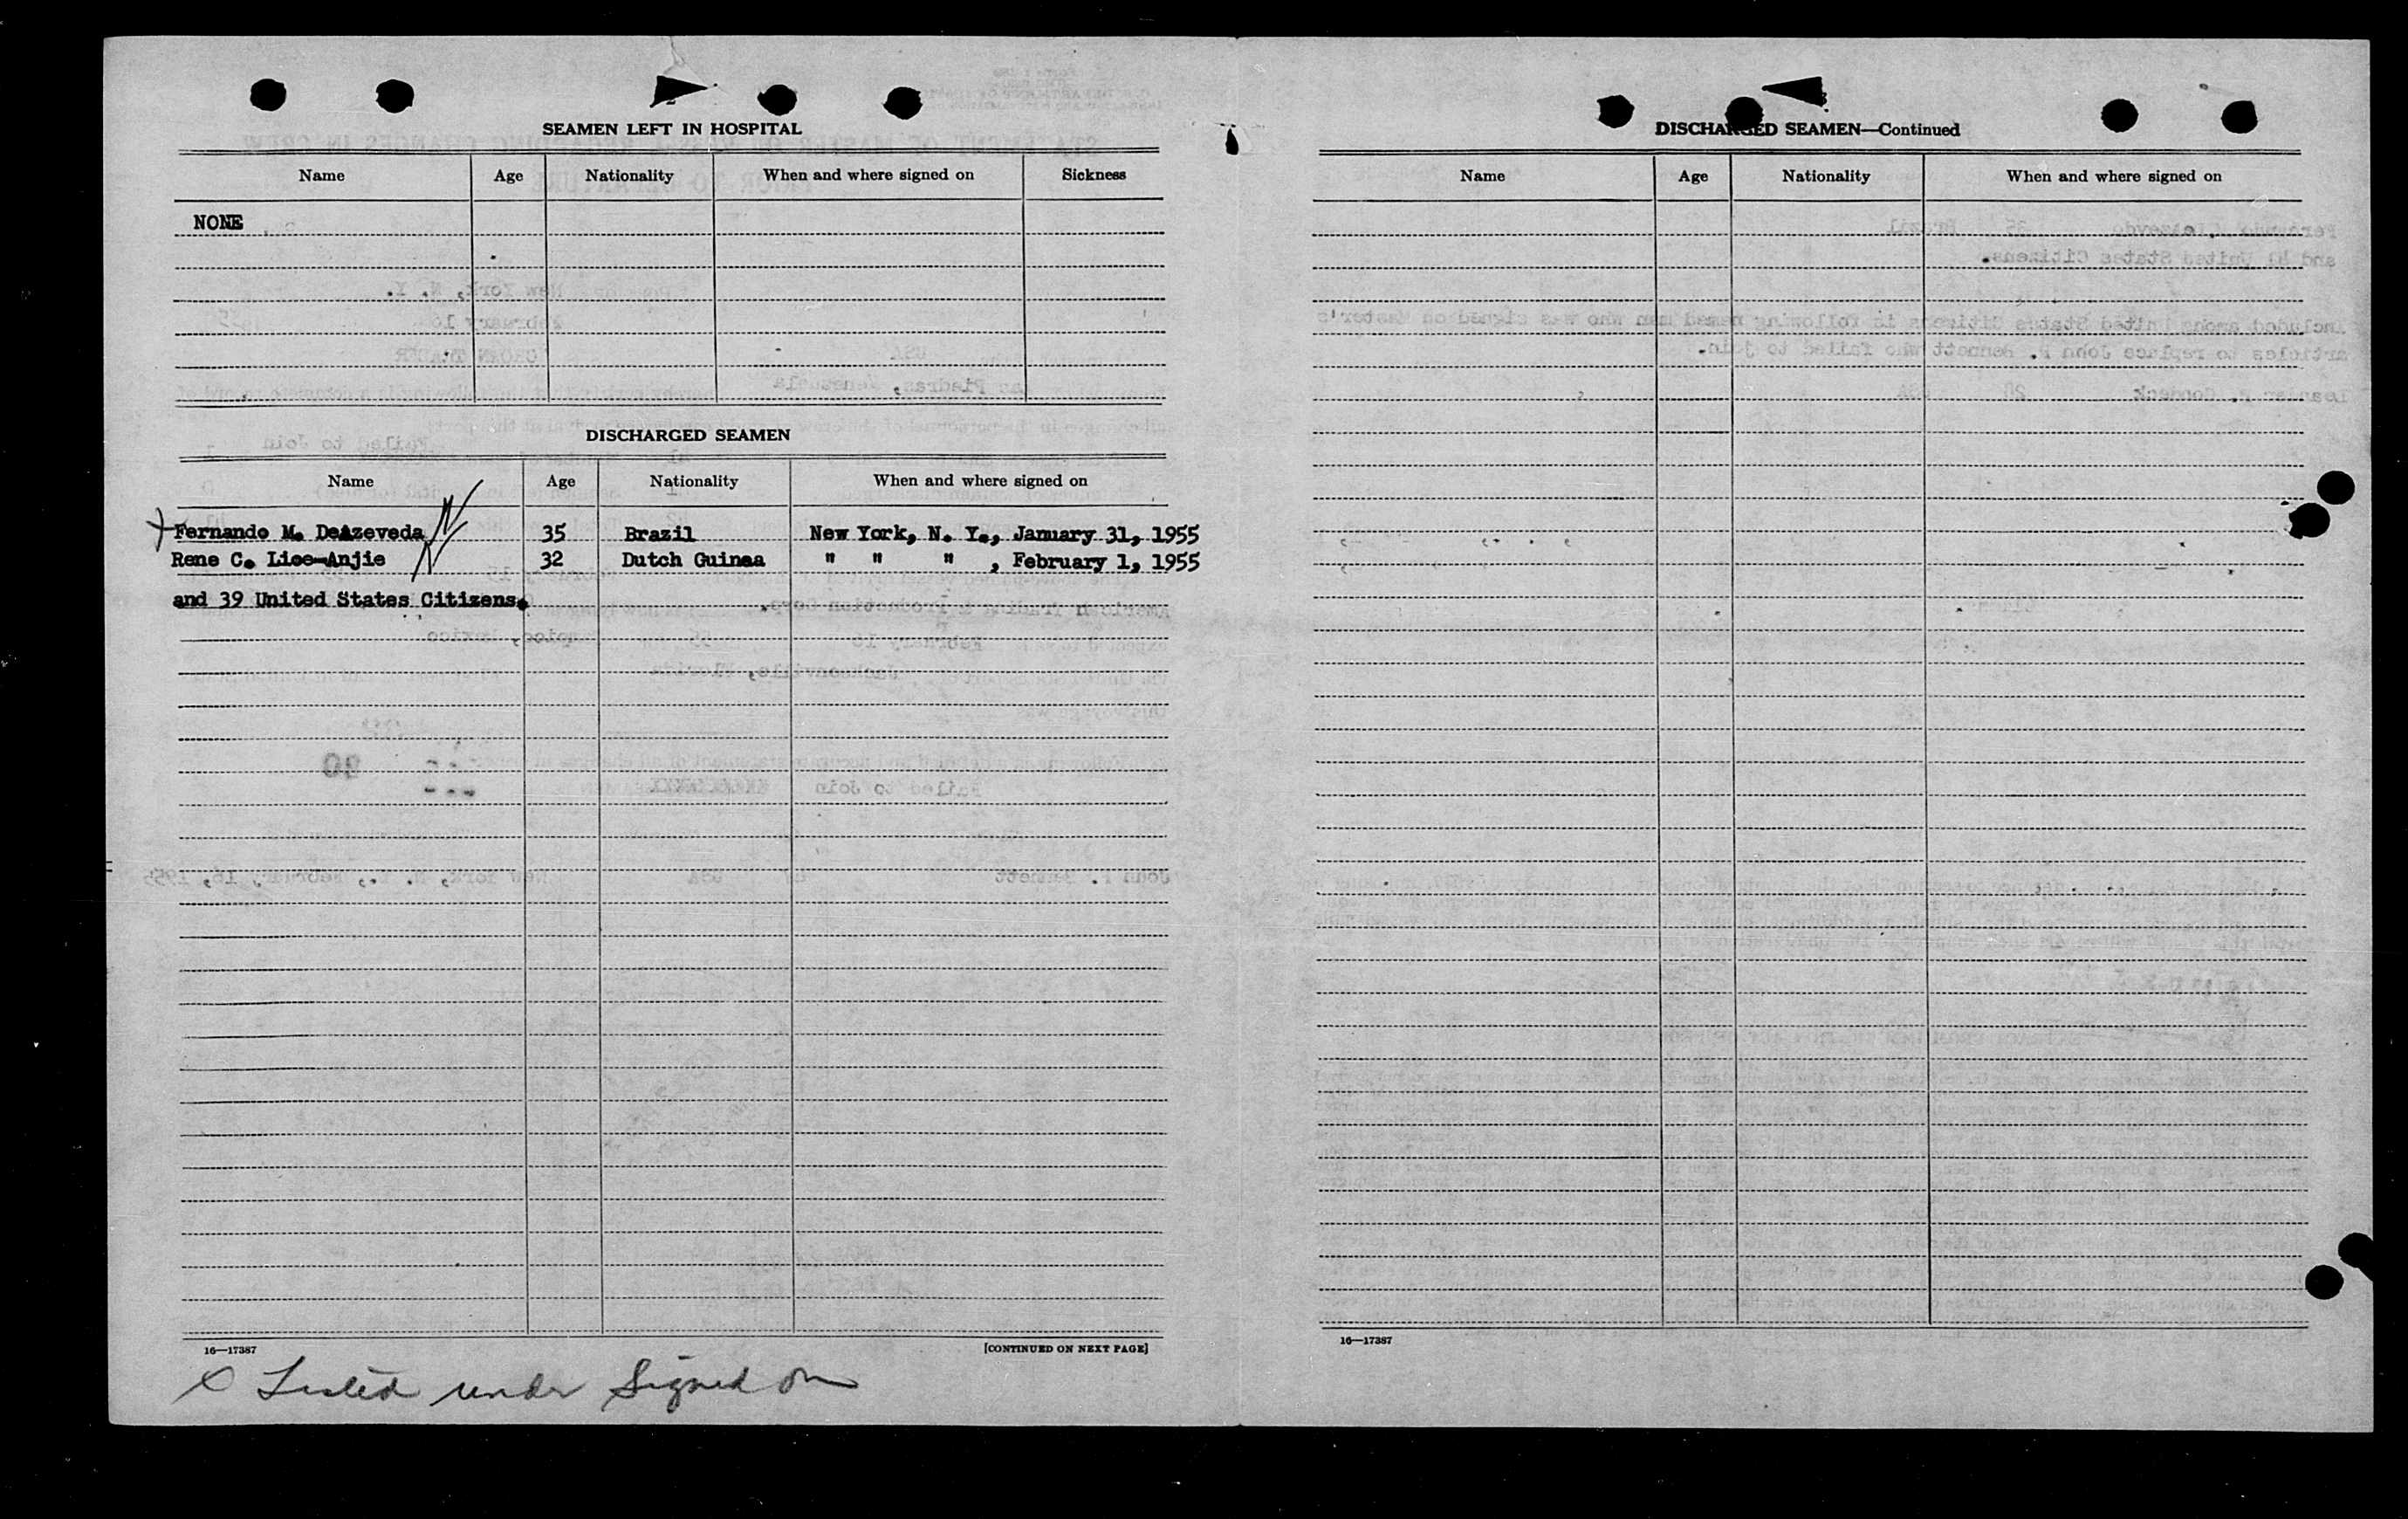 SEAMEN LEFT IN HOSPITAL
Name Age Nationality When and where signed on Sickness
NONE
DISCHARGED SEAMEN
Name Age Nationality When and where signed on
Fernando M. DeAzeveda 35 Brazil New York, N. Y., January 31, 1955
Rene C. Lioe-Anjie 32 Dutch Guinea " " " , February 1, 1955
and 39 United States Citizens.
16—17387 [CONTINUED ON NEXT PAGE]
Listed under Signed on
DISCHARGED SEAMEN—Continued
Name Age Nationality When and where signed on
16—17387